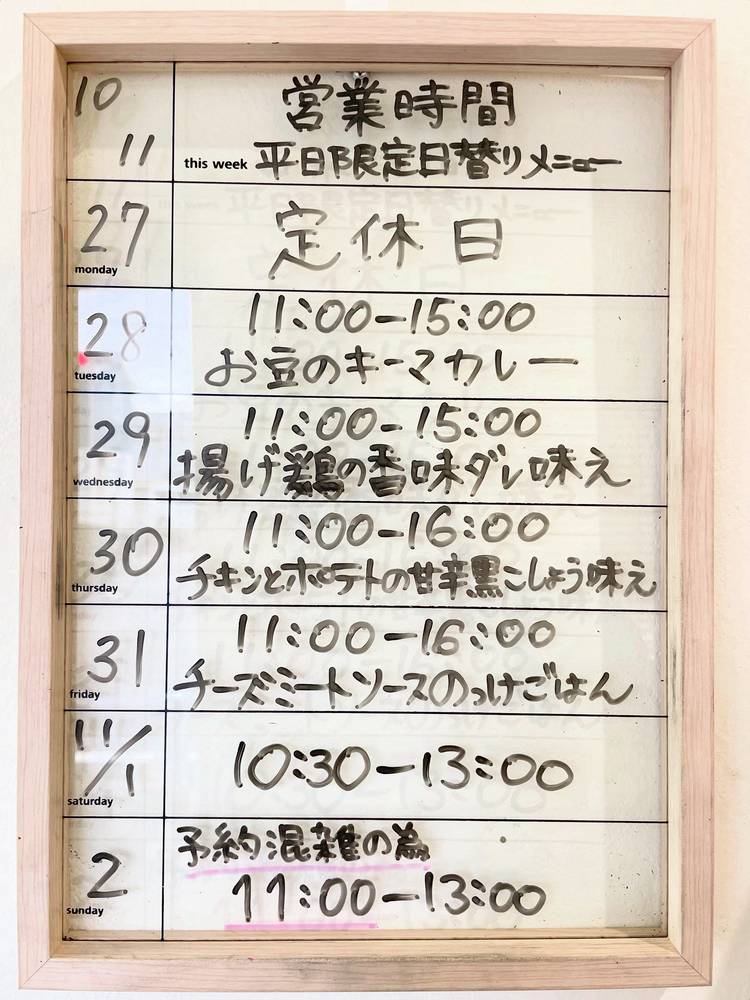 10 営業時間
11 this week 平日限定日替りメニュー
27 monday 定休日
28 tuesday 11:00-15:00
お豆のキーマカレー
29 wednesday 11:00-15:00
揚げ鶏の香味ダレ味え
30 thursday 11:00-16:00
チキンとポテトの甘辛黒こしょう味え
31 friday 11:00-16:00
チーズミートソースのっけごはん
11/1 saturday 10:30-13:00
予約混雑の為
2 sunday 11:00-13:00